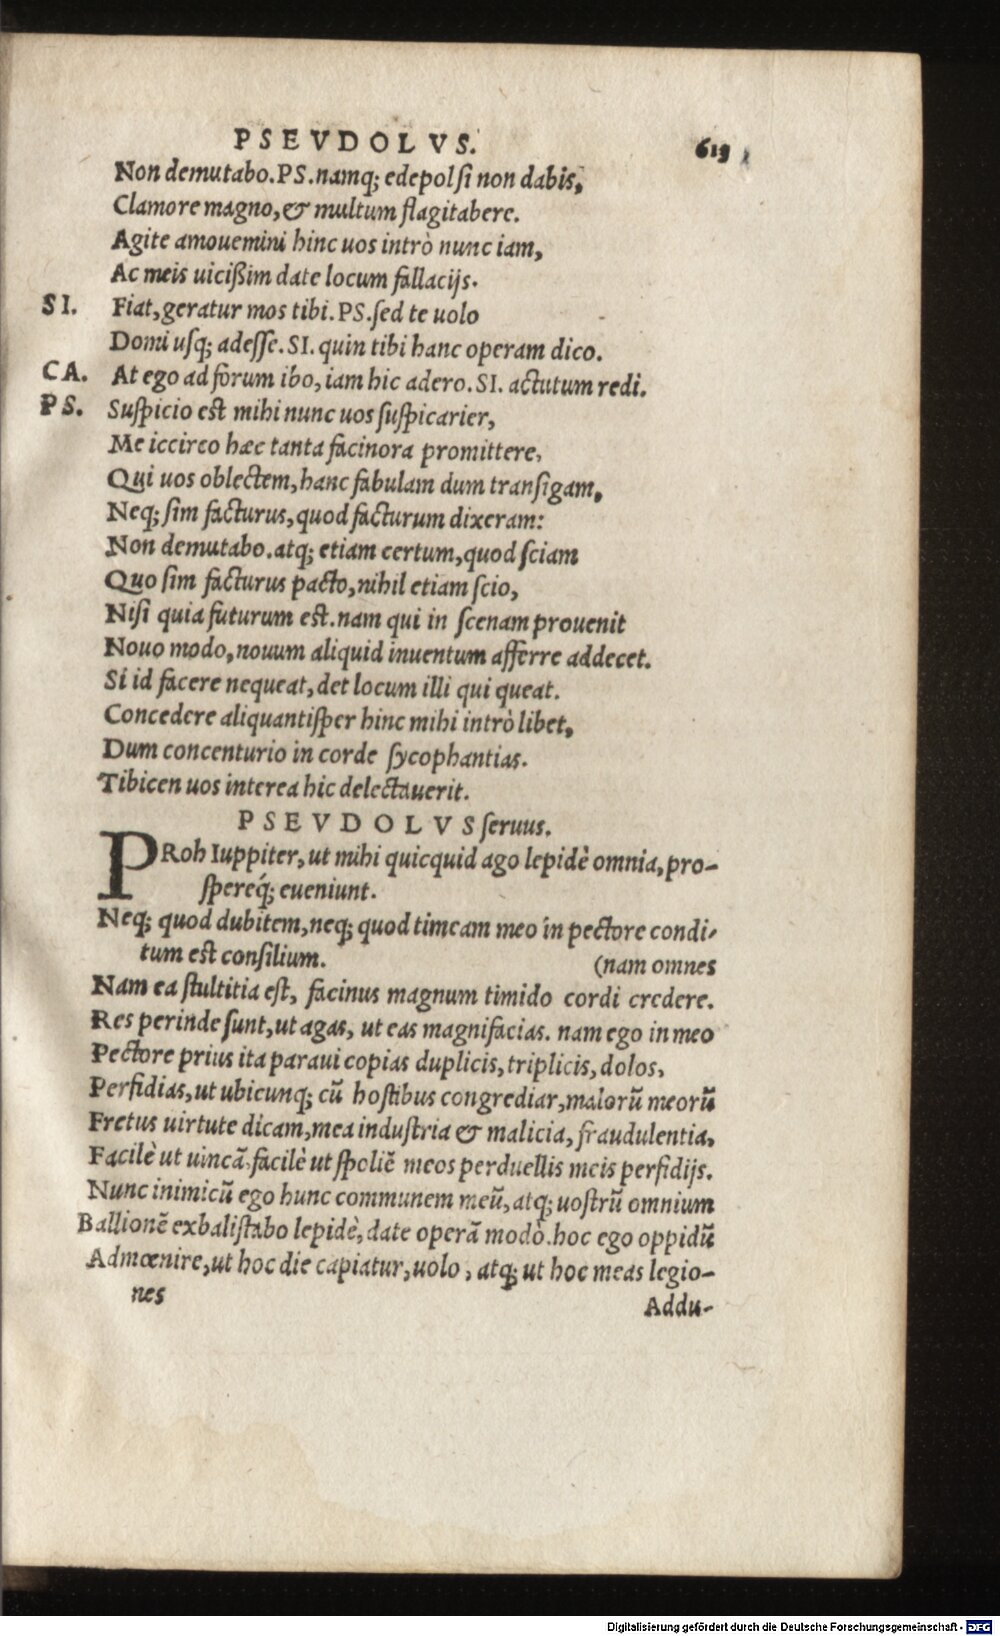 PSEVDOLVS. 619
Non demutabo.PS.namq; edepol ſi non dabis,
Clamore magno,& multum flagitabere.
Agite amouemini hinc uos intrò nunc iam,
Ac meis uicißim date locum fallacijs.
SI. Fiat,geratur mos tibi.PS.ſed te uolo
Domi uſq; adeſſe.SI. quin tibi hanc operam dico.
CA. At ego ad forum ibo,iam hic adero.SI. actutum redi.
PS. Suſpicio eſt mihi nunc uos ſuſpicarier,
Me iccirco hæc tanta facinora promittere,
Qui uos oblectem,hanc fabulam dum tranſigam,
Neq; ſim facturus,quod facturum dixeram:
Non demutabo.atq; etiam certum,quod ſciam
Quo ſim facturus pacto,nihil etiam ſcio,
Niſi quia futurum eſt.nam qui in ſcenam prouenit
Nouo modo,nouum aliquid inuentum afferre addecet.
Si id facere nequeat,det locum illi qui queat.
Concedere aliquantiſper hinc mihi intrò libet,
Dum concenturio in corde ſycophantias.
Tibicen uos interea hic delectauerit.
PSEVDOLVS ſeruus.
PRoh Iuppiter,ut mihi quicquid ago lepidè omnia,pro-
ſpereq́; eueniunt.
Neq; quod dubitem,neq; quod timeam meo in pectore condi-
tum eſt conſilium. (nam omnes
Nam ea ſtultitia eſt, facinus magnum timido cordi credere.
Res perinde ſunt,ut agas, ut eas magnifacias. nam ego in meo
Pectore prius ita paraui copias duplicis,triplicis,dolos,
Perfidias,ut ubicunq; cũ hoſtibus congrediar,maiorũ meorũ
Fretus uirtute dicam,mea induſtria & malicia,fraudulentia,
Facilè ut uincã,facilè ut ſpoliẽ meos perduellis meis perfidijs.
Nunc inimicũ ego hunc communem meũ,atq; uoſtrũ omnium
Ballionẽ exbaliſtabo lepidè,date operã modò.hoc ego oppidũ
Admœnire,ut hoc die capiatur,uolo, atq; ut hoc meas legio-
nes Addu-
Digitalisierung gefördert durch die Deutsche Forschungsgemeinschaft - DFG